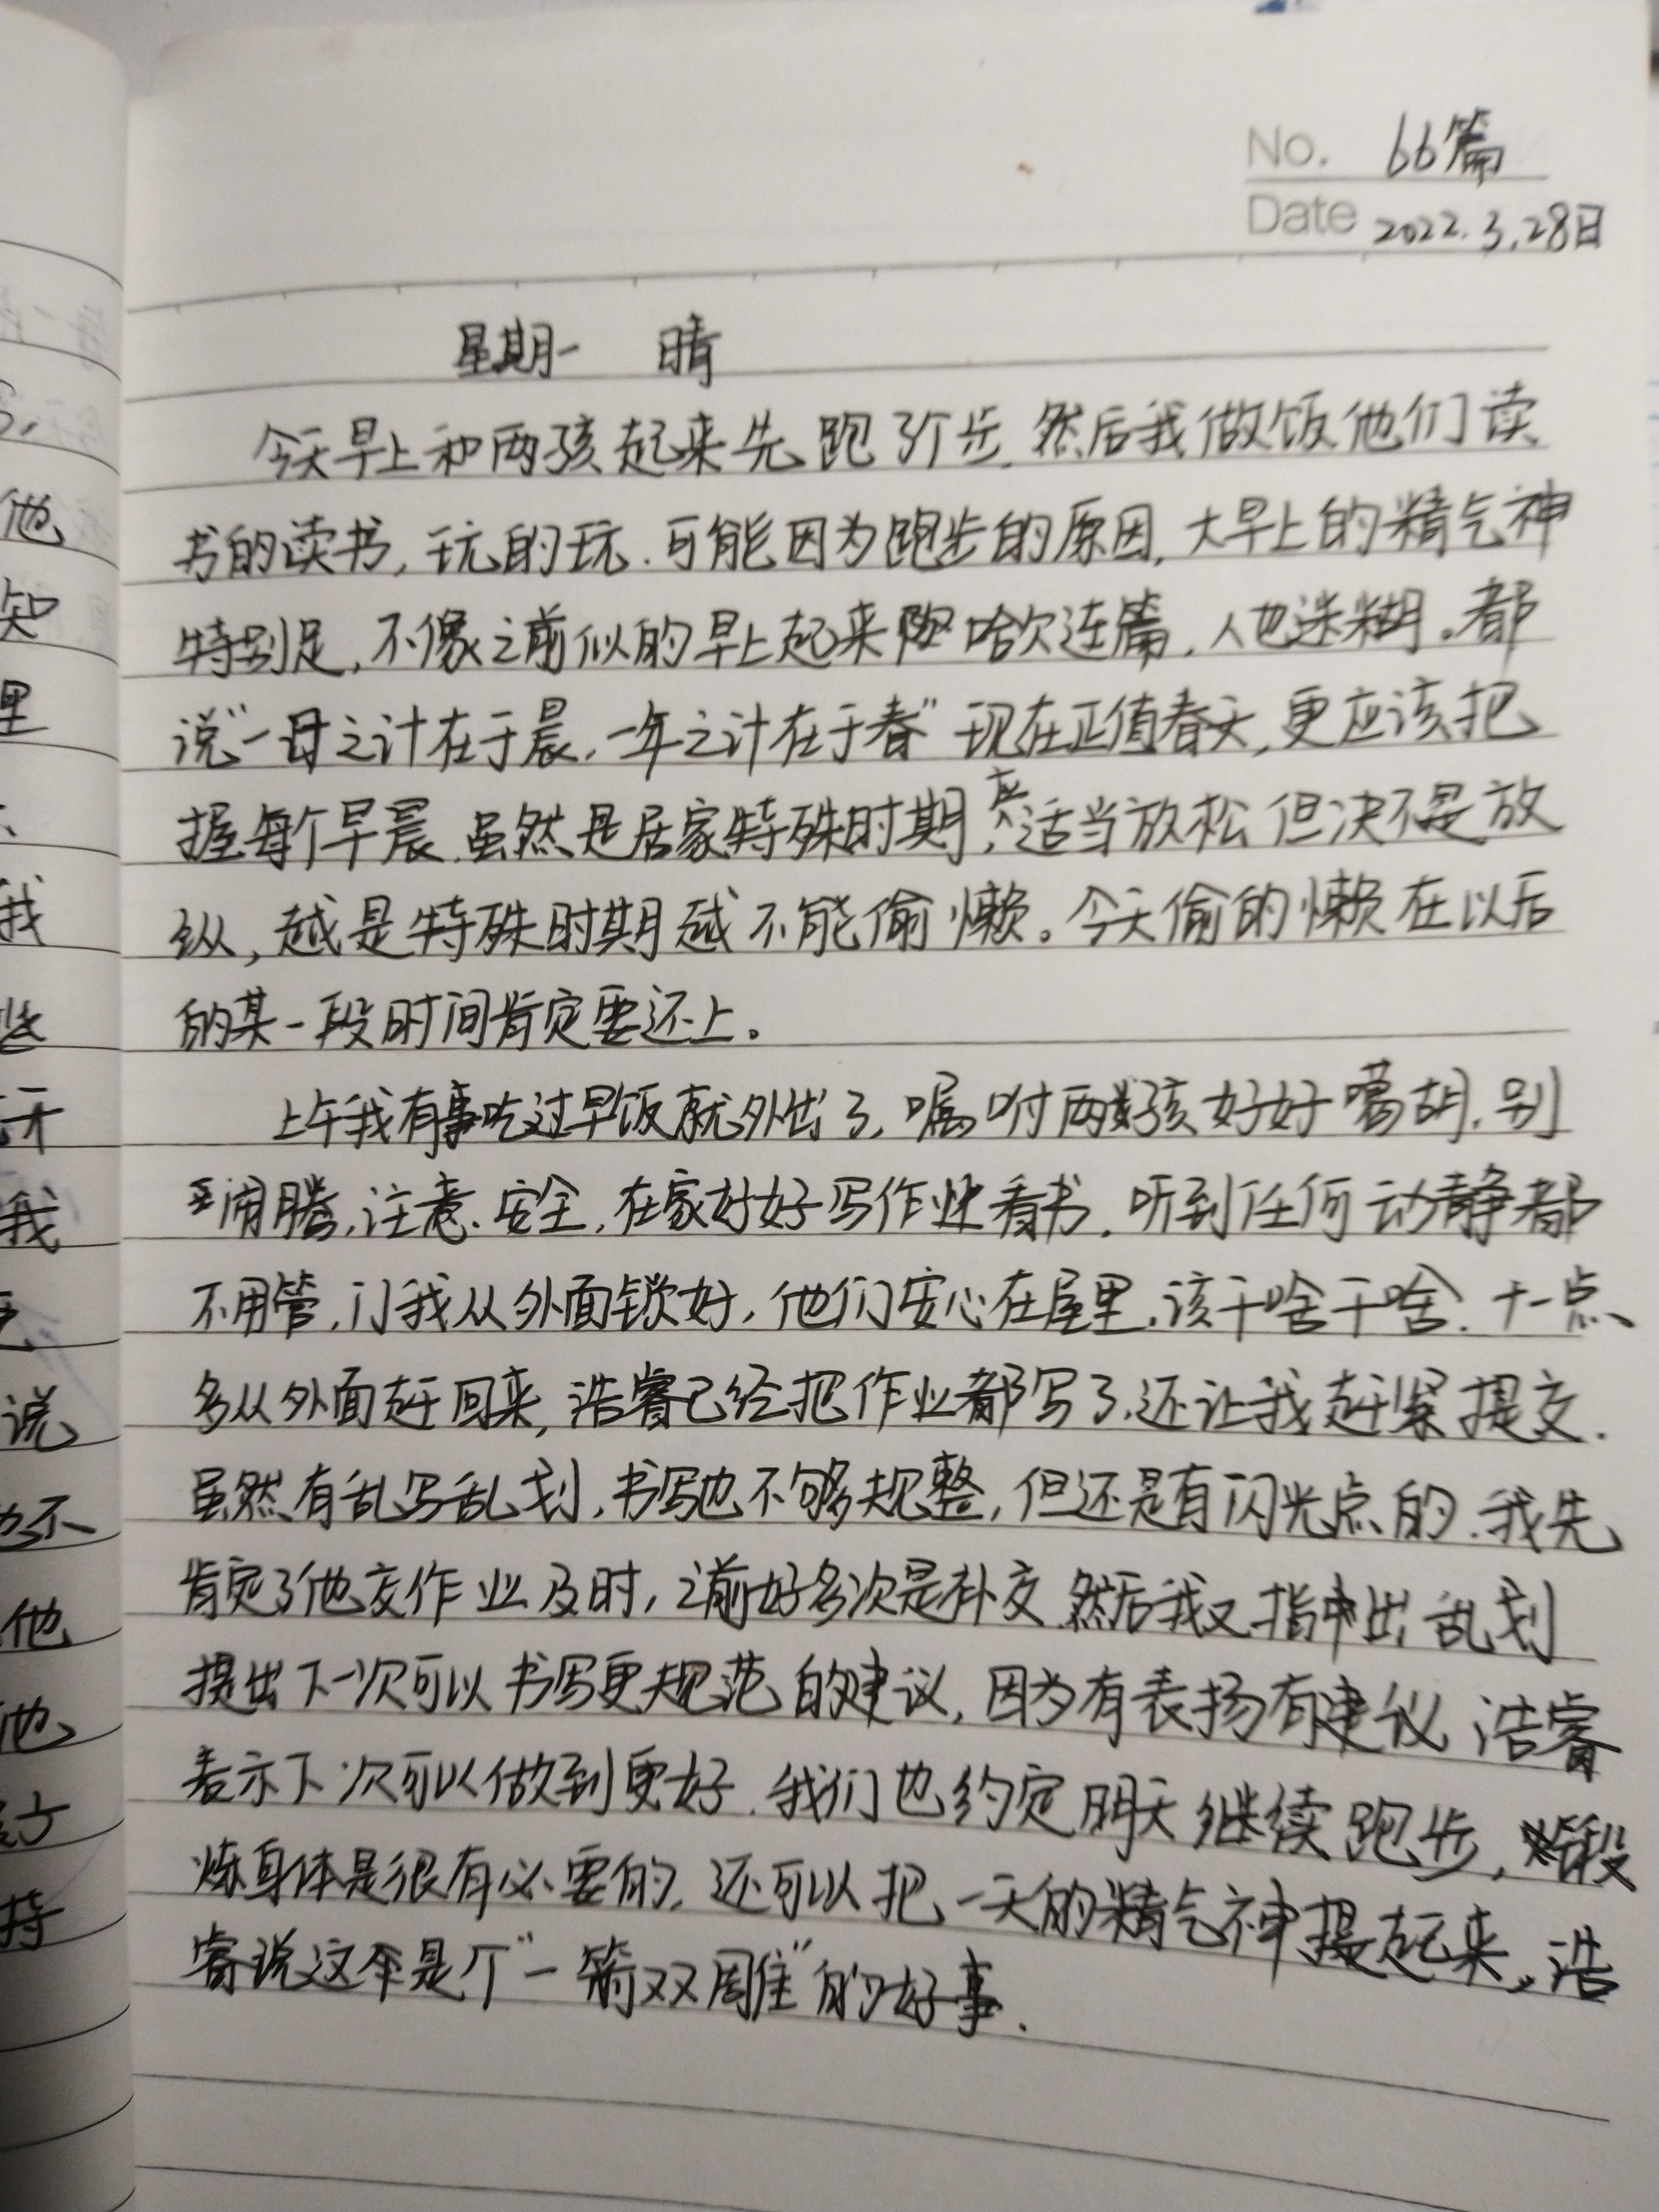 No. 66篇
Date 2022.3.28日
星期一 晴
今天早上和两孩起来先跑了个步.然后我做饭他们读
书的读书,玩的玩.可能因为跑步的原因,大早上的精气神
特别足,不像之前似的早上起来哈欠连篇,人也迷糊。都
说"一日之计在于晨,一年之计在于春"现在正值春天,更应该把
握每个早晨.虽然是居家特殊时期,适当放松但决不是放
纵,越是特殊时期越不能偷懒。今天偷的懒在以后
的某一段时间肯定要还上。
上午我有事吃过早饭就外出了,嘱咐两孩好好,别
闹腾,注意、安全,在家好好写作业看书.听到任何动静都
不用管,门我从外面锁好,他们安心在屋里,该干啥干啥.十一点
多从外面赶回来,浩睿已经把作业都写了,还让我赶紧提交.
虽然有乱写乱划,书写也不够规整,但还是有闪光点的.我先
肯定了他交作业及时,之前好多次是补交.然后我又指出乱划
提出下一次可以书写更规范的建议,因为有表扬有建议浩睿
表示下次可以做到更好.我们也约定明天继续跑步,锻
炼身体是很有必要的,还可以把一天的精气神提起来。浩
睿说这个是个"一箭双雕"的好事.
他
知
里
我
牙
我
说
也不
他
他
持